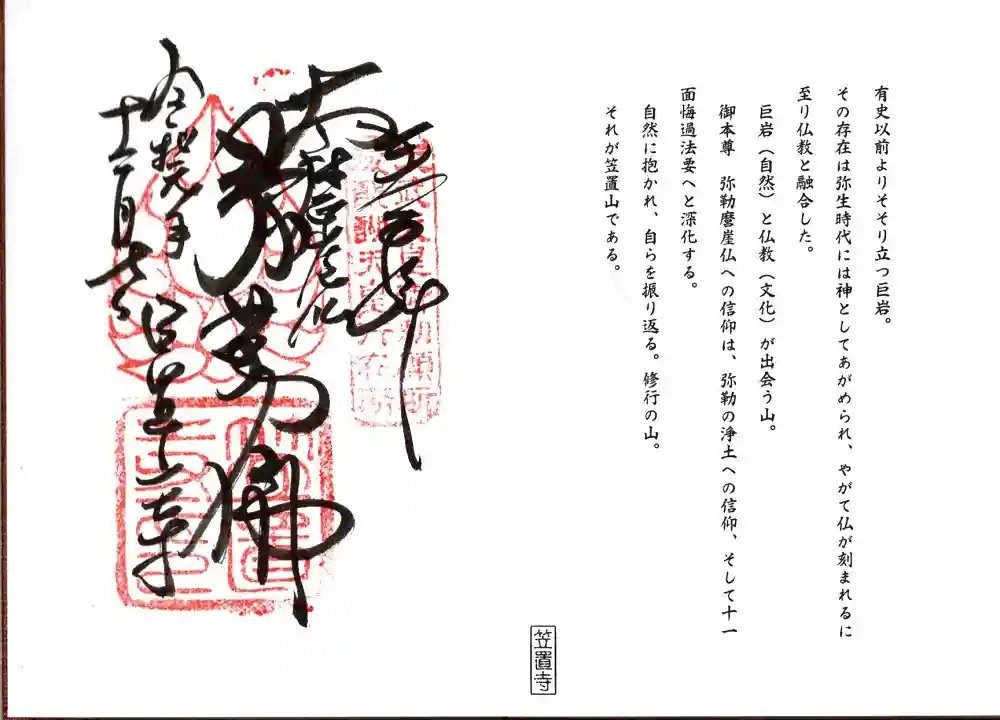 有史以前よりそそり立つ巨岩。
その存在は弥生時代には神としてあがめられ、やがて仏が刻まれるに
至り仏教と融合した。
巨岩（自然）と仏教（文化）が出会う山。
御本尊 弥勒磨崖仏への信仰は、弥勒の浄土への信仰、そして十一
面悔過法要へと深化する。
自然に抱かれ、自らを振り返る。修行の山。
それが笠置山である。
笠置寺
弥勒佛
令和元年
笠置寺